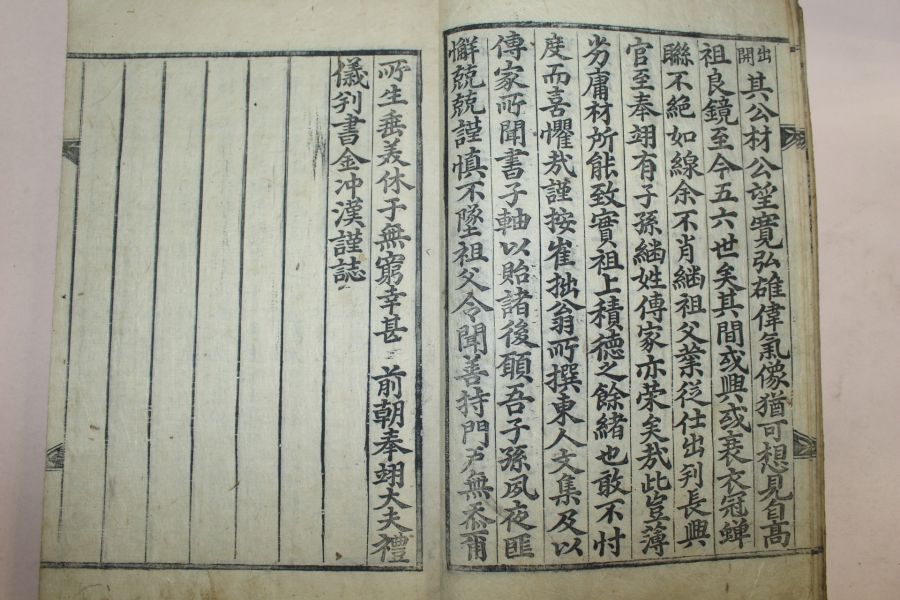 出開其公材公望寬弘雄偉氣像猶可想見自高
祖良鏡至今五六世矣其間或興或衰衣冠蟬
聯不絶如線余不肖繼祖父業從仕出判長興
官至奉翊有子孫繼姓傳家亦荣矣㢤此豈薄
劣庸材所能致實祖上積德之餘緒也敢不忖
度而喜懼㢤謹按崔拙翁所撰東人文集及以
傳家所聞書子軸以貽諸後願吾子孫夙夜匪
懈兢兢謹愼不墜祖父令聞善持門戶無忝爾
所生垂義休于無窮幸甚 前朝奉翊大夫禮
儀判書金冲漢謹誌